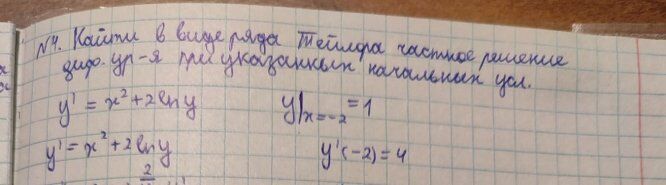 N4. Найти в виде ряда Тейлора частное решение
диф. ур-я при указанных начальных усл.
y' = x² + 2 ln y    y|x=-2 = 1
y' = x² + 2 ln y    y'(-2) = 4
2